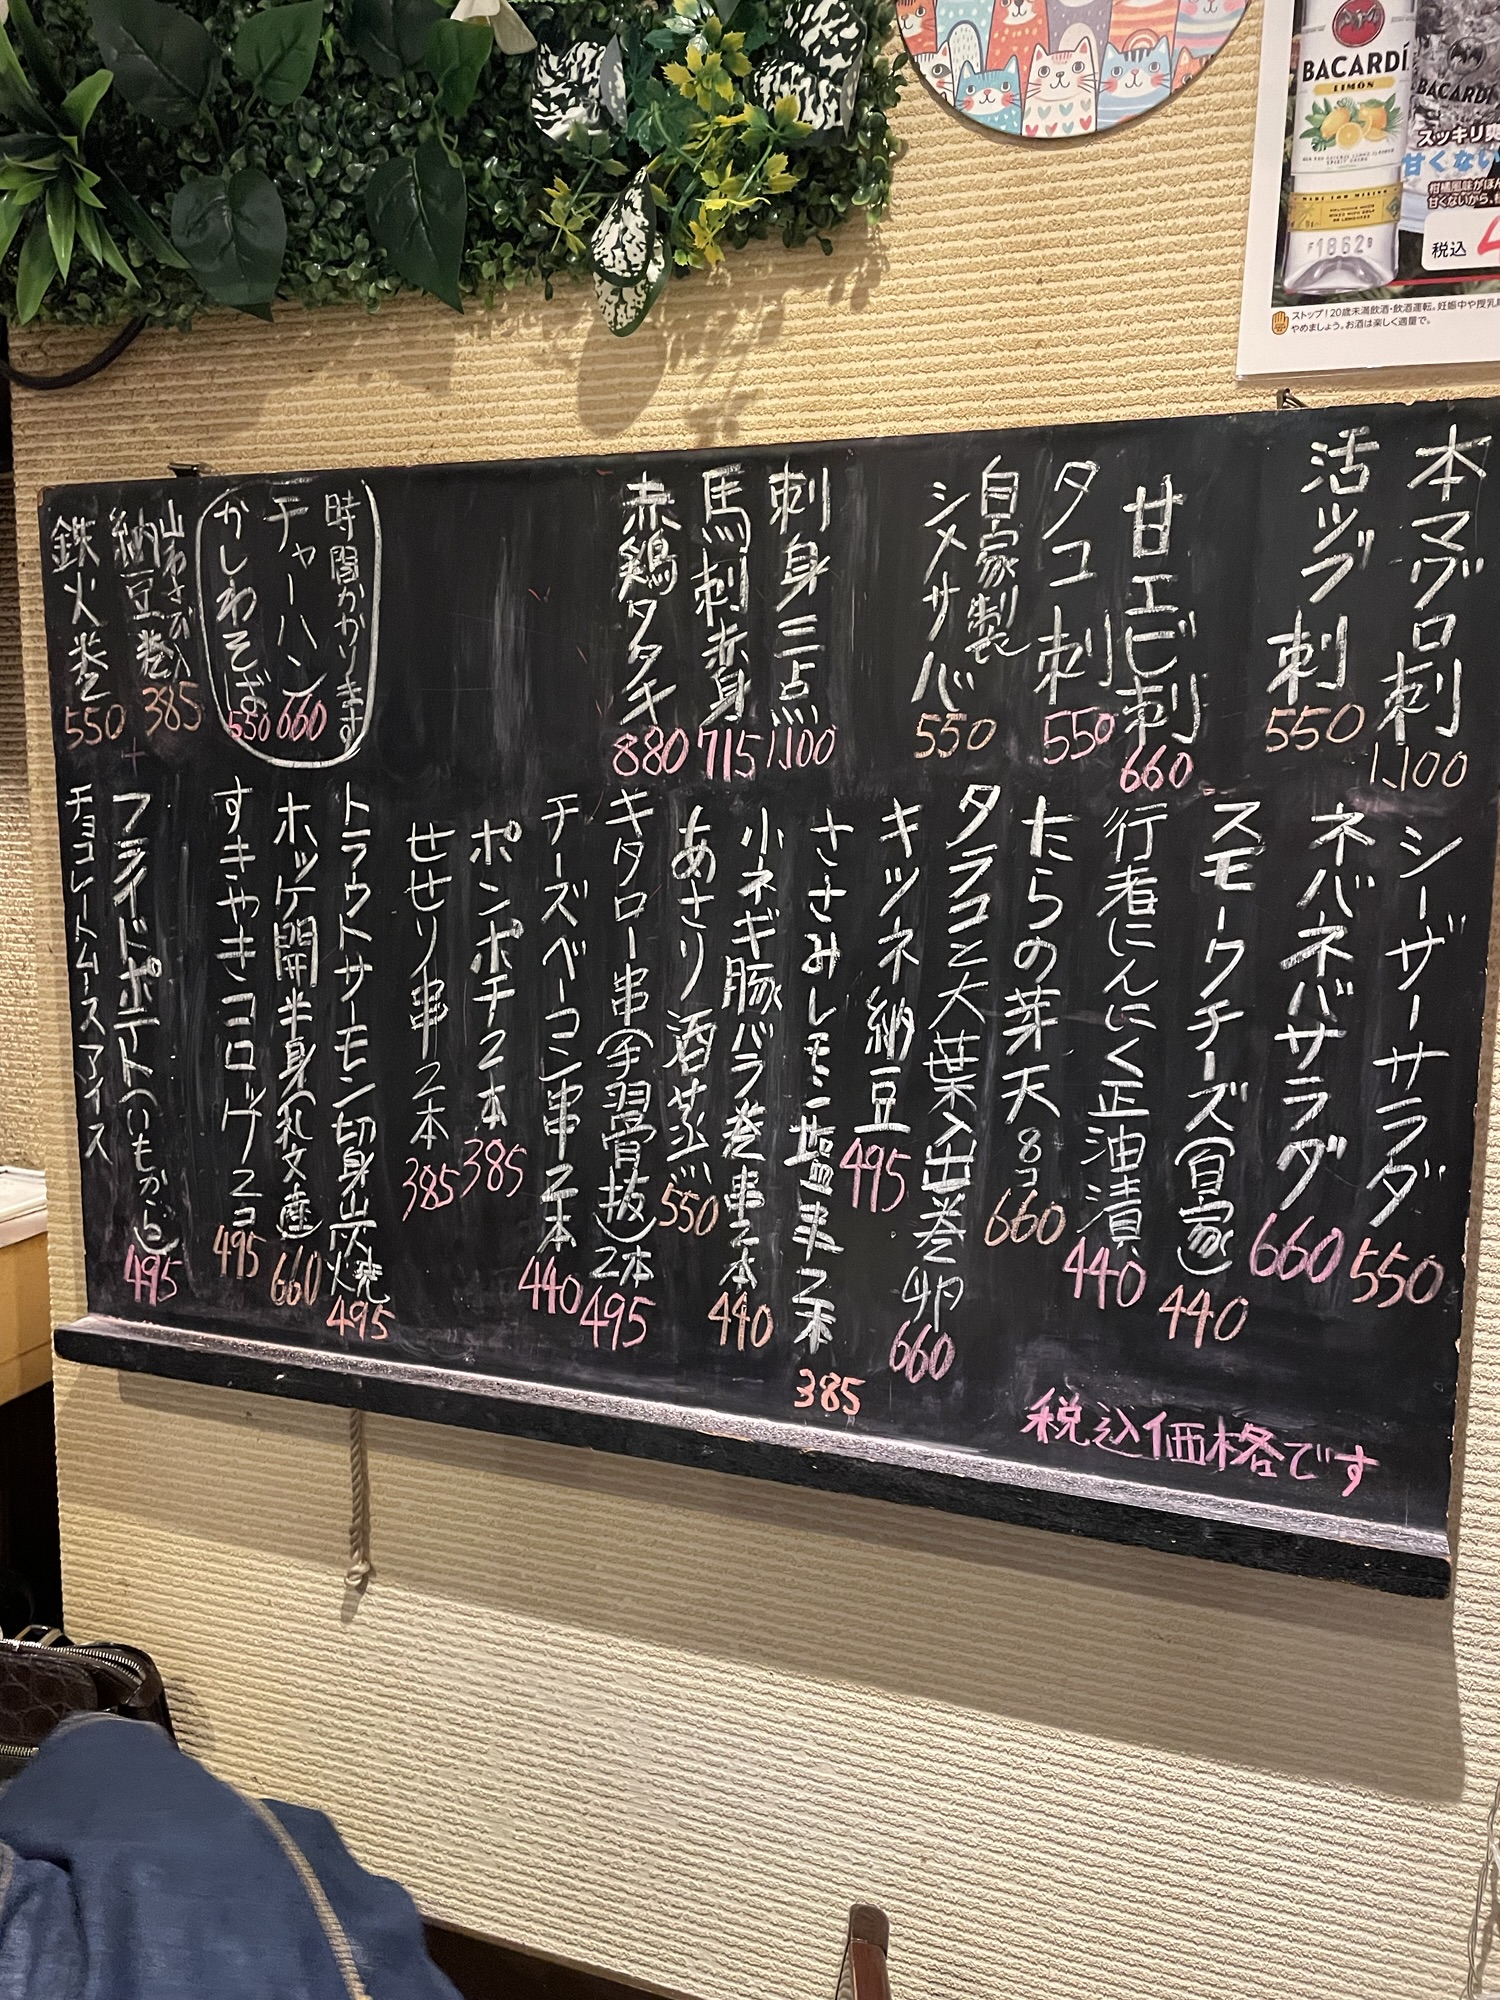 BACARDÍ
LIMON
1862
BACARDÍ
スッキリ爽
甘くない
税込
ストップ!20歳未満飲酒・飲酒運転。妊娠中や授乳
やめましょう。お酒は楽しく適量で。
本マグロ刺 1,100
活ツブ刺 550
甘エビ刺 660
タコ刺 550
自家製
シメサバ 550
刺身三点 1,100
馬刺赤身 715
赤鶏タタキ 880
時間かかります
チャーハン 660
かしわそば 550
山わさび入
納豆巻 385
鉄火巻 550
シーザーサラダ 550
ネバネバサラダ 660
スモークチーズ(自家) 440
行者にんにく正油漬 440
たらの芽天 8コ 660
タラコと大葉入出巻卵 660
キツネ納豆 495
ささみレモン塩串2本 385
小ネギ豚バラ巻串2本 440
あさり酒蒸 550
キタロー串(手羽骨抜)2本 495
チーズベーコン串2本 440
ポンポチ2本 385
せせり串2本 385
トラウトサーモン切身山灰焼 495
ホッケ開半身(礼文産) 660
すきやきコロッケ2コ 495
フライドポテト(いもから) 495
チョコレートムースアイス
税込価格です